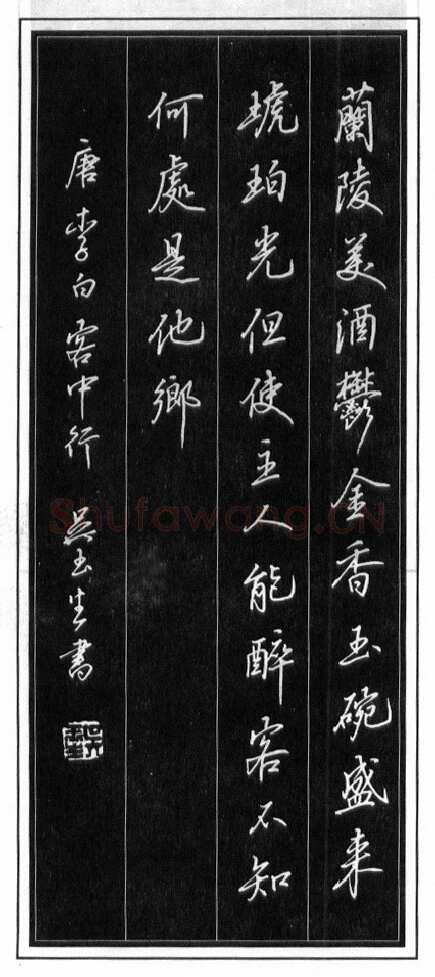 蘭陵美酒鬱金香玉碗盛来
琥珀光但使主人能醉客不知
何處是他鄉
唐李白客中行 吴玉生書
Shufawang.CN